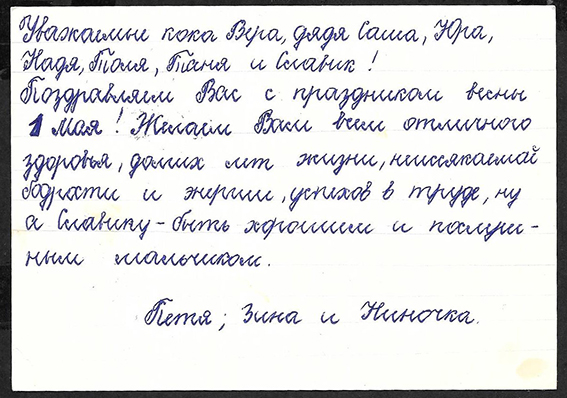 Уважаемые кока Вера, дядя Саша, Юра,
Надя, Толя, Таня и Славик!
Поздравляем Вас с праздником весны
1 Мая! Желаем Вам всем отличного
здоровья, долгих лет жизни, неиссякаемой
бодрости и энергии, успехов в труде, ну
а Славику - быть хорошим и послуш-
ным мальчиком.
Петя, Зина и Ниночка.